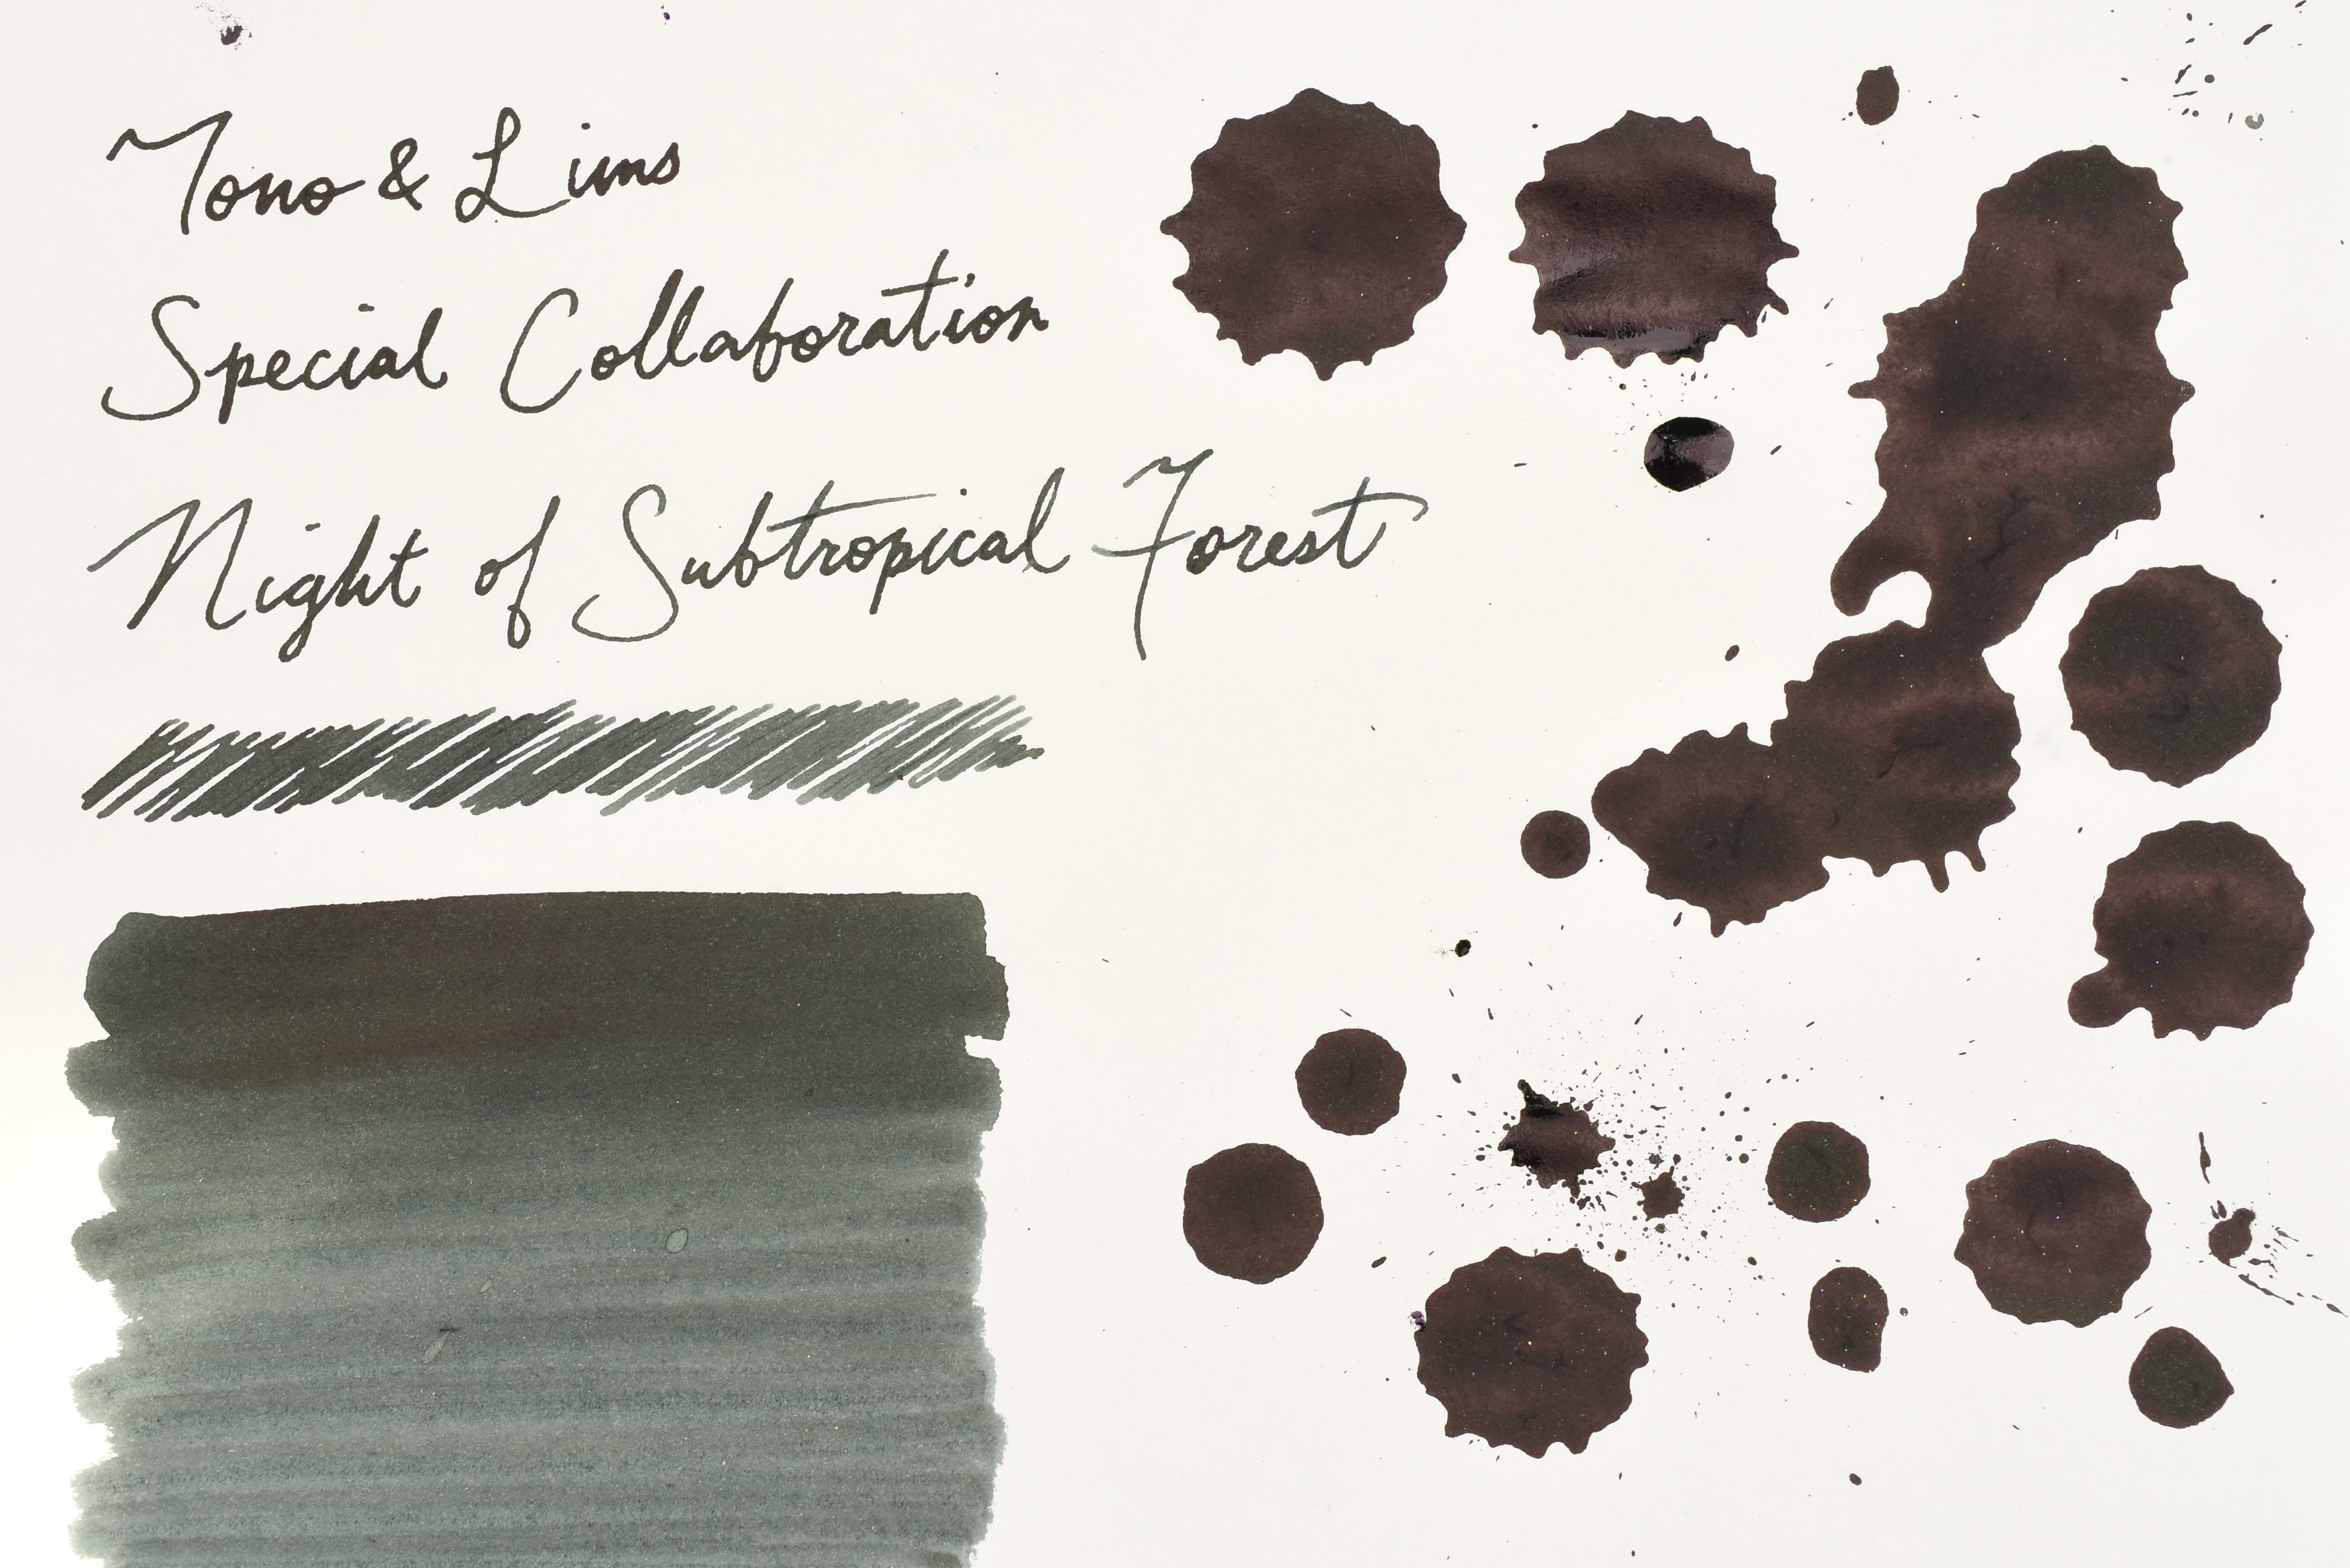 Tono & Lims
Special Collaboration
Night of Subtropical Forest